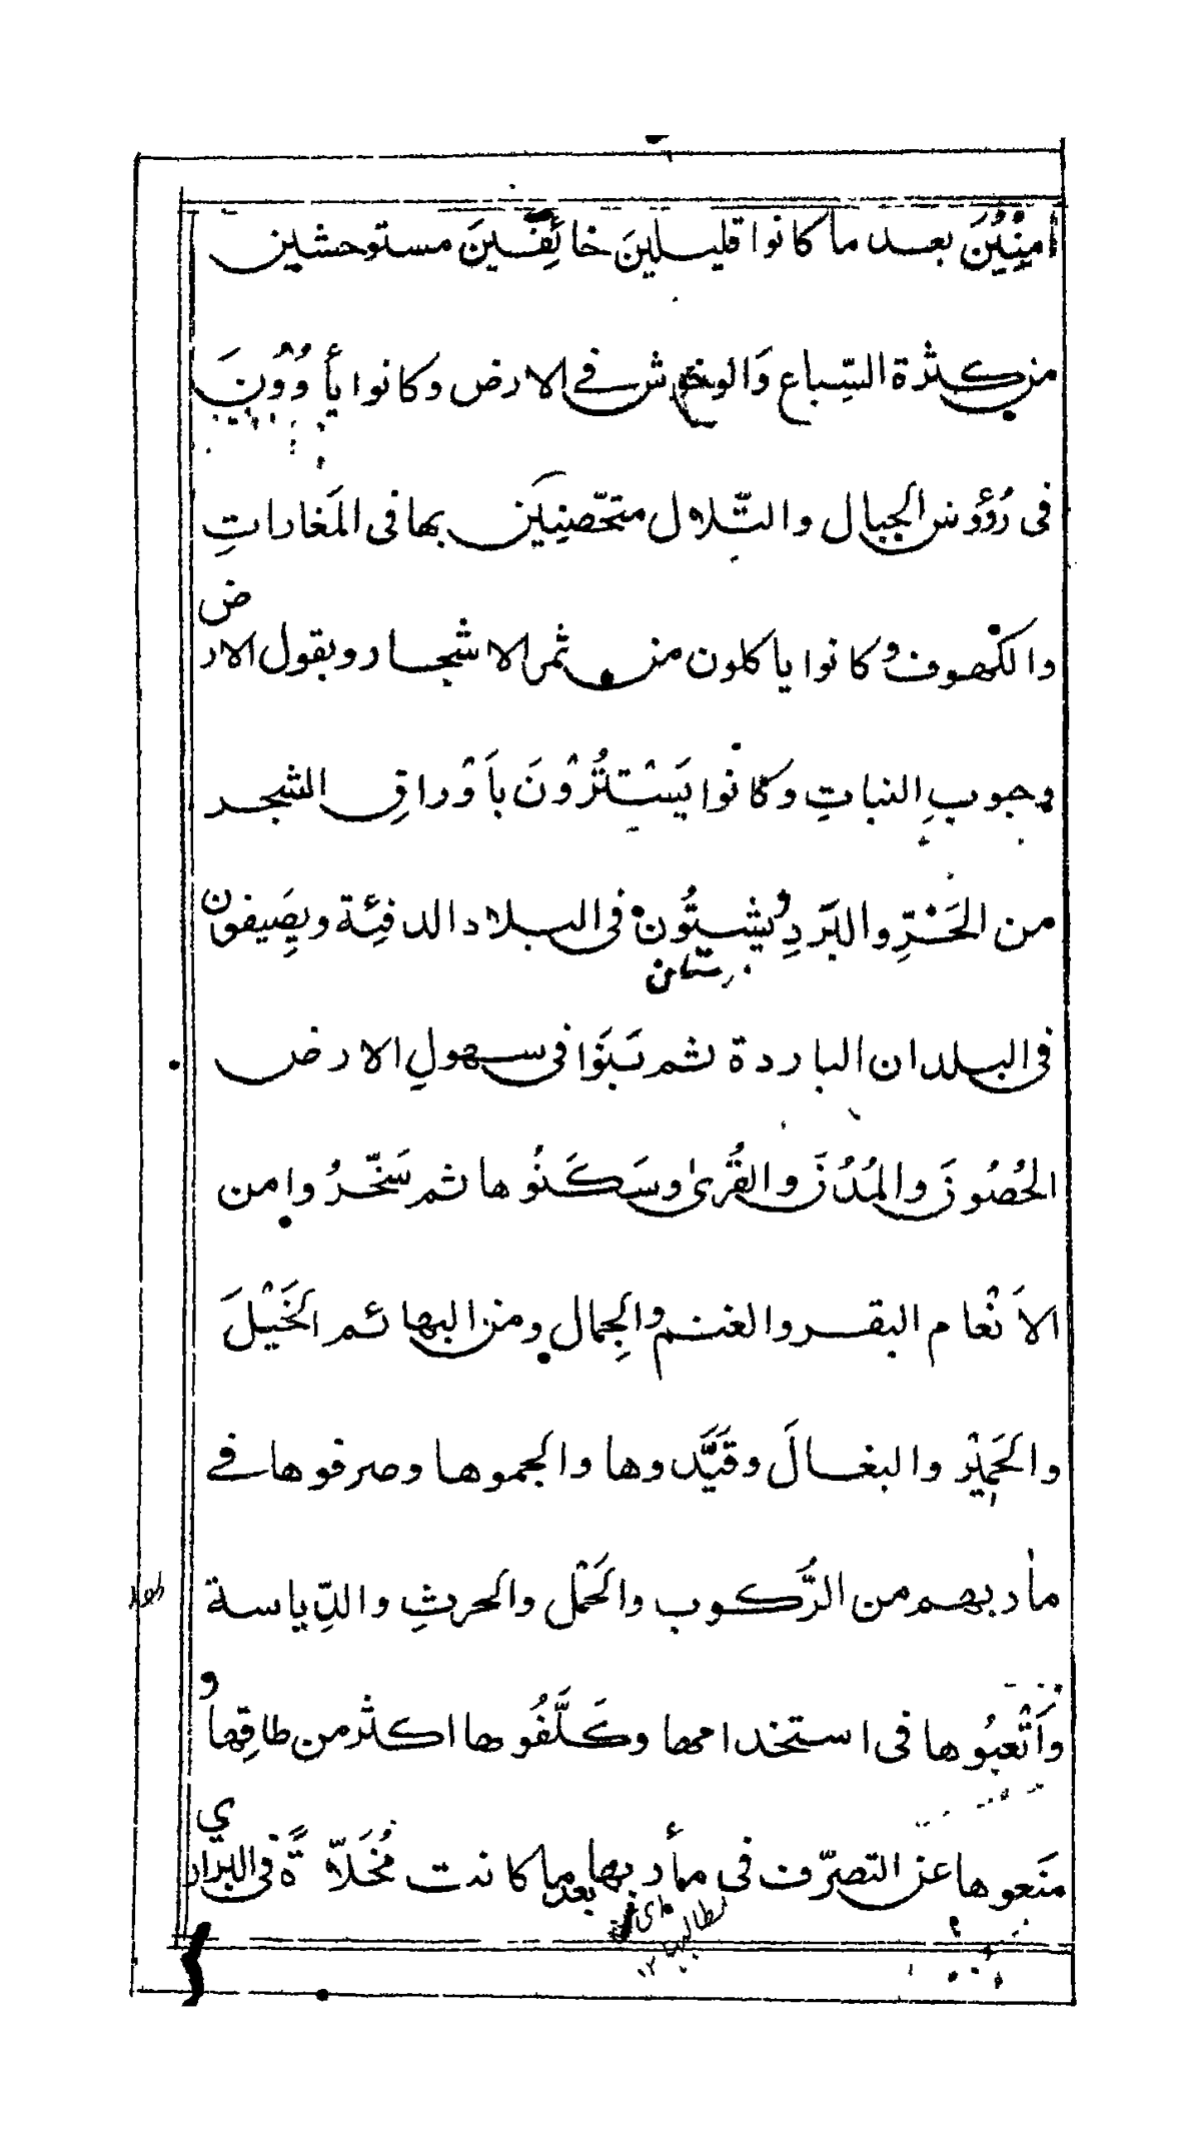 اٰمِنِيْنَ بعد ما كانوا قليلينَ خائِفِينَ مستوحشين
من كثرة السِّباع وَالوحوش فى الارض وكانوا يأوُوْنَ
فى رُؤُوسِ الجبال والتّلال متحّصنِينَ بها فى المَغاراتِ
والكُهوف وكانوا ياكلون من ثمر الاشجار وبقول الارض
وحبوبِ النباتِ وكانُوا يَسْتَتِرُوْنَ بِاَوْراقِ الشجر
من الحَرِّ والبَردِ ويشتُون فى البلاد الدفِئة ويصَيفون
فى البلدان الباردة ثم بَنَوَا فى سهولِ الارض
الحُصُونَ والمُدُنَ والقُرىٰ وسَكَنُوها ثم سَخّرُوا من
الاَنْعام البقر والغنم والجِمال ومن البهائم الخَيْلَ
والحَمِيْر والبغالَ وقَيَّدوها والجموها وصرفوها فى
مأربهم من الرُّكوب والحَمْل والحرثِ والدِّياسة
وَاَتْعبُوها فى استخدامها وكَلَّفُوها اكثر من طاقِتها و
منَعوها عن التصرّف فى مأربها بعد ما كانت مُخَلاّةً فى البرارى